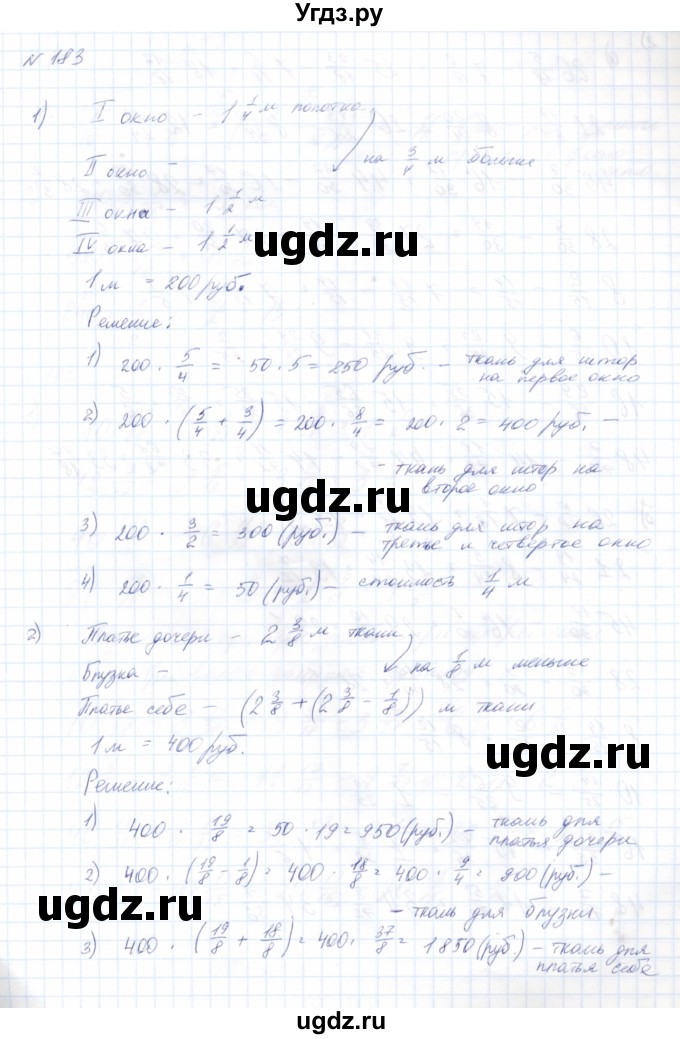 Угдз.ру
N 183
1) I окно – 1 1/4 м полотна
на 3/4 м больше
II окно –
III окна – 1 1/2 м
IV окна – 1 1/2 м
ugdz.ru
1 м = 200 руб.
Решение:
1) 200 · 5/4 = 50 · 5 = 250 руб. – ткань для штор
на первое окно
2) 200 · (5/4 + 3/4) = 200 · 8/4 = 200 · 2 = 400 руб. –
– ткань для штор на
второе окно
ugdz.ru
3) 200 · 3/2 = 300 (руб.) – ткань для штор на
третье и четвертое окно
4) 200 · 1/4 = 50 (руб.) – стоимость 1/4 м
2) Платье дочери – 2 3/8 м ткани
Блузка – на 1/8 м меньше
Платье себе – (2 3/8 + (2 3/8 – 1/8)) м ткани
1 м = 400 руб.
ugdz.ru
Решение:
1) 400 · 19/8 = 50 · 19 = 950 (руб.) – ткань для
платья дочери
2) 400 · (19/8 – 1/8) = 400 · 18/8 = 400 · 9/4 = 900 (руб.) –
– ткань для блузки
ugdz.ru
3) 400 · (19/8 + 18/8) = 400 · 37/8 = 1850 (руб.) – ткань для
платья себе
ugdz.ru